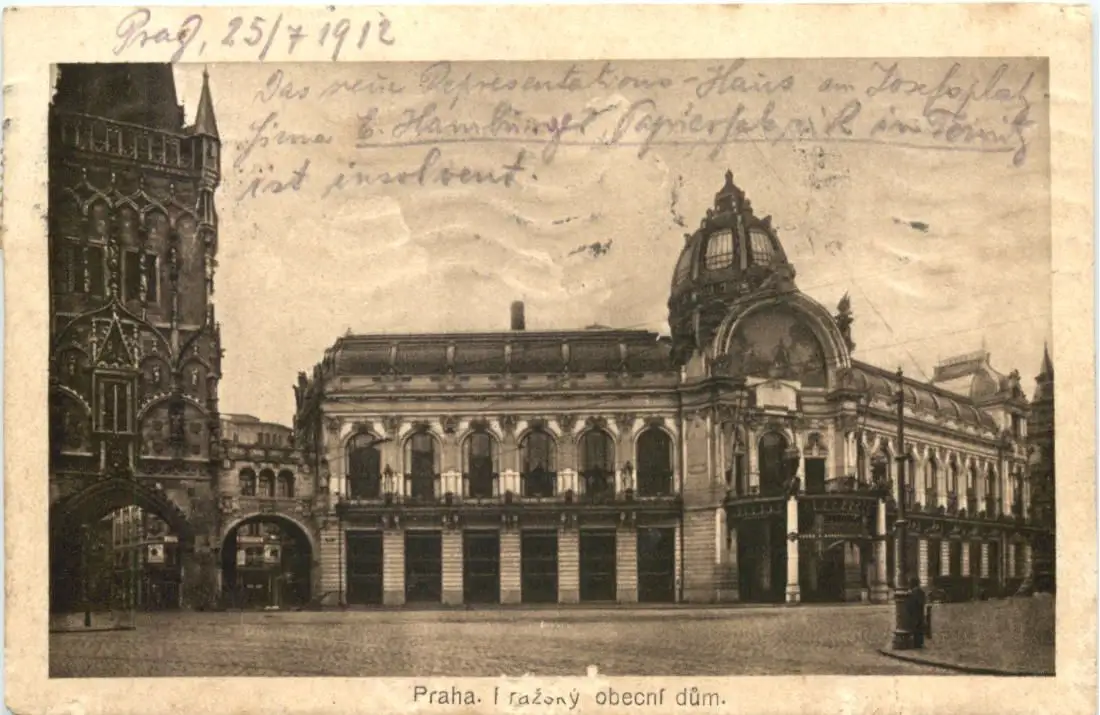 Prag, 25/7 1912
Das neue Representations-Haus am Josefsplatz.
Firma E. Hamburger Papierfabrik in Ternitz
ist insolvent.
Praha. Pražský obecní dům.